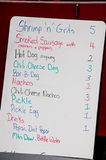 Shrimp 'n' Grits 5
Smoked Sausage with 4
onions & peppers
Hot Dog w/chili 2
Chili Cheese Dog 3
Bar-B-Dog 3
Nachos 2
Chili Cheese Nachos 3
Pickle 1
Pickle Egg 1
Drinks 1
Pepsi, Diet Pepsi
Mtn Dew, Bottle Water